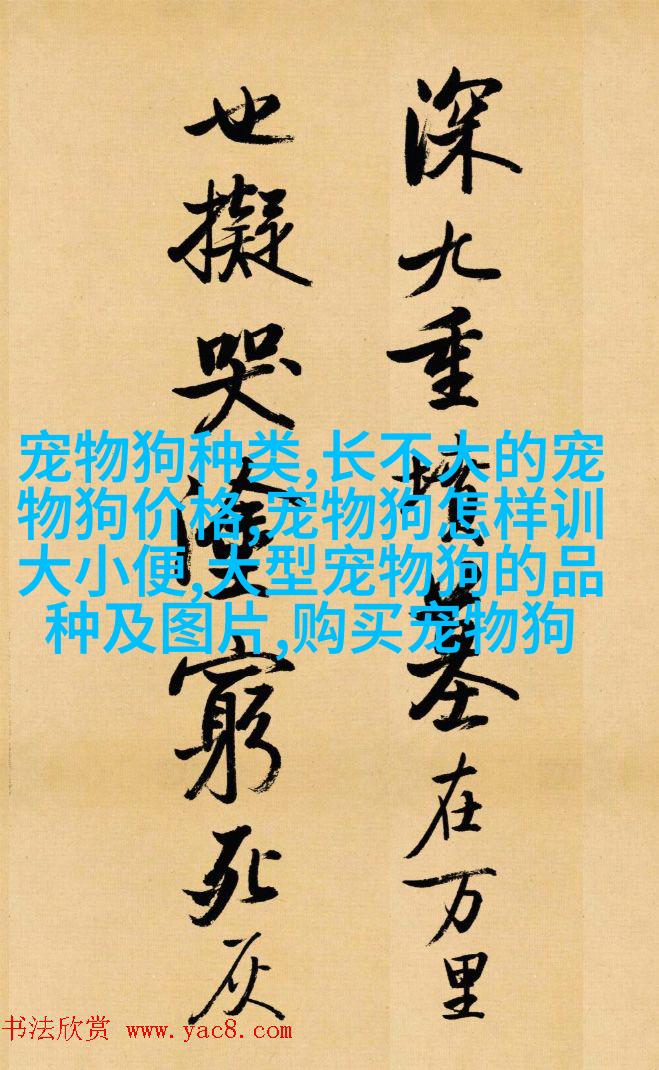 深九重墳墓在万里
也擬哭塗窮死灰
宠物狗种类,长不大的宠
物狗价格,宠物狗怎样训
大小便,大型宠物狗的品
种及图片,购买宠物狗
书法欣赏 www.yac8.com